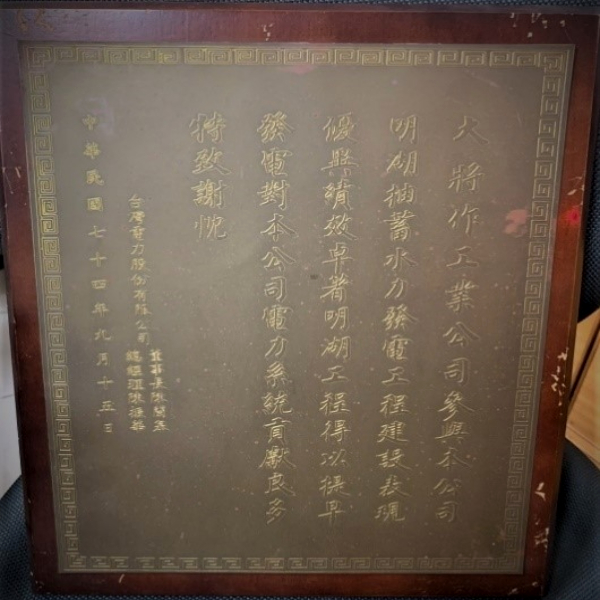 大將作工業公司參與本公司
明湖抽蓄水力發電工程建設表現
優異績效卓著明湖工程得以提早
發電對本公司電力系統貢獻良多
特致謝忱
台灣電力股份有限公司
董事長陳蘭皋
總經理陳振華
中華民國七十四年九月十五日